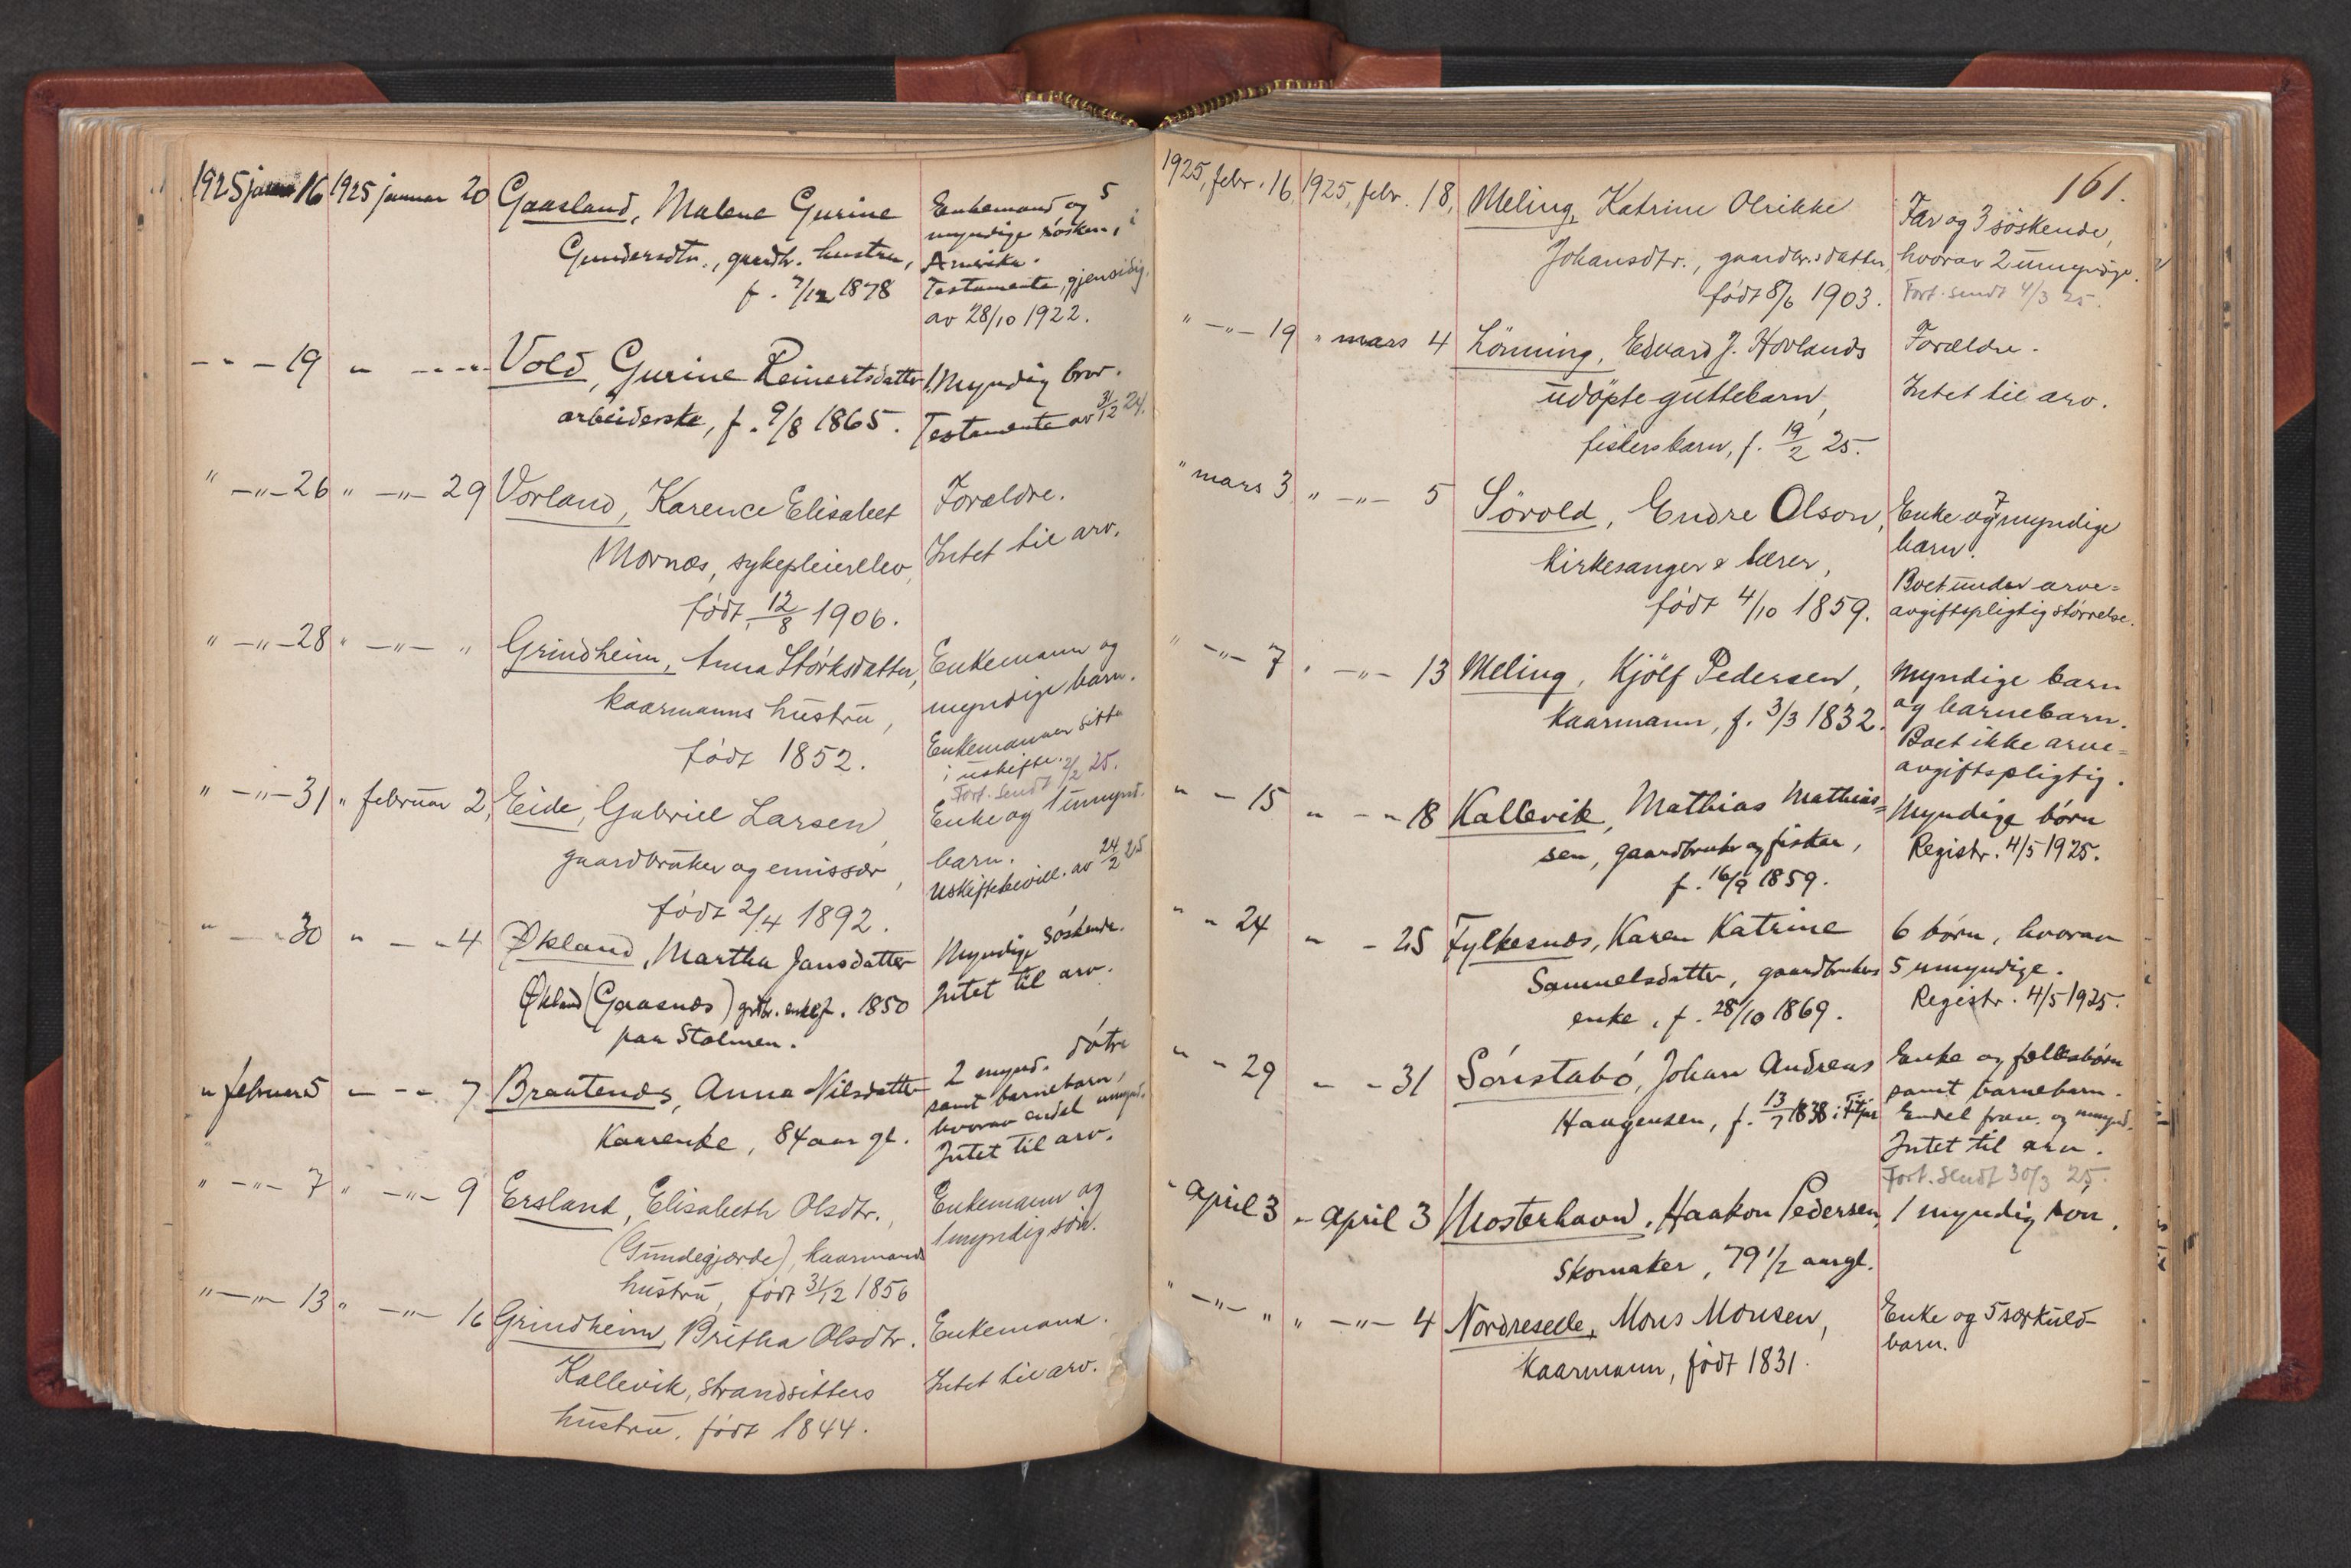 1925 januar 16 1925 januar 20 Gaasland, Malene Gurine Enkemand og 5
Gundersdtr., gaardbr. hustru, myndige søsken, i
f. 7/12 1878 Amerika.
Testamente, gjensidig,
av 28/10 1922.
- " - 19 " - " - Vold, Gurine Reinertsdatter 1 Myndig bror.
arbeiderske, f. 9/8 1865. Testamente av 31/12 24.
" - " - 26 " - " - 29 Vorland, Karence Elisabet Forældre.
Mornæs, sykepleierelev, Intet til arv.
født 12/8 1906.
" - " - 28 " - " - " Grindheim, Anna Størksdatter, Enkemann og
kaarmanns hustru, myndige barn.
født 1852. Enkemannen sitter
i uskifte.
Fort. sendt 2/2 25.
" - " - 31 " februar 2, Eide, Gabriel Larsen, Enke og 1 umynd.
gaardbruker og emissær, barn.
født 2/4 1892. Uskiftebevill. av 24/2 25
" - " - 30 " - " - 4 Økland, Martha Jansdatter Myndige søskende.
Økland (Gaasnæs) grdbr. enke f. 1850 Intet til arv.
paa Stolmen.
" februar 5 " - " - 7 Brautenæs, Anna Nilsdatter 2 mynd. døtre
Kaarenke, 84 aar gl. samt barnebarn,
hvorav endel umynd.
Intet til arv.
" - " - 7 " - " - 9 Ersland, Elisabeth Olsdtr., Enkemann og
(Gundegjærde), kaarmands 1 myndig søn.
hustru, født 31/12 1856
" - " - 13 " - " - 16 Grindheim, Britha Olsdtr. Enkemann.
Kallevik, strandsitters Intet til arv.
hustru, født 1844.
161.
1925, febr. 16, 1925, febr. 18, Meling, Katrine Olrikke Far og 3 søskende,
Johansdtr., gaardbr.s datter, hvorav 2 umyndige.
født 8/6 1903. Fort. sendt 4/3 25.
" - " - 19 " mars 4 Lønning, Edvard J. Hovlands Forældre.
udøpte guttebarn, Intet til arv.
fiskers barn, f. 19/2 25.
" mars 3 " - " - 5 Sørvold, Endre Olson, Enke og 7 myndige
kirkesanger & lærer, barn.
født 4/10 1859. Boet under arve-
avgiftspligtig størrelse.
" - " - 7 " - " - 13 Meling, Kjølf Pedersen, Myndige barn
Kaarmann, f. 3/3 1832. og barnebarn.
Boet ikke arve-
avgiftspligtig.
" - 15 " - " 18 Kallevik, Mathias Mathias- Myndige børn
sen, gaardbruker og fisker, Registr. 4/5 1925.
f. 16/9 1859.
" " 24 " - 25 Fylkesnæs, Karen Katrine 6 børn, hvorav
Samuelsdatter, gaardbrukers 5 umyndige.
enke, f. 28/10 1869. Registr. 4/5 1925.
" " 29 " - 31 Sørstabø, Johan Andreas Enke og fellesbørn
Haagensen, f. 13/7 1838 i Fitjar samt barnebarn.
Endel frav. og umynd.
Intet til arv.
Fort. sendt 30/3 25.
" April 3 " April 3 Mosterhavn, Haakon Pedersen, 1 myndig søn.
Skomaker, 79 1/2 aar gl.
" - " - " " - " - 4 Nordresede, Mons Monsen, Enke og 5 særkuld-
Kaarmann, født 1831. barn.